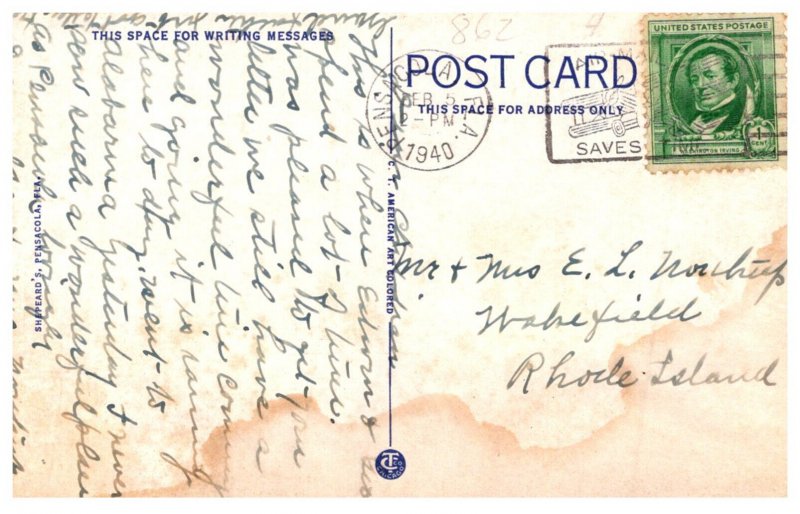 862
4
THIS SPACE FOR WRITING MESSAGES
POST CARD
THIS SPACE FOR ADDRESS ONLY
PENSACOLA, FLA.
FEB 5
2-PM
1940
AIR MAIL
SAVES
UNITED STATES POSTAGE
WASHINGTON IRVING
1 CENT
This is where Edwin & us
spend a lot of time.
was pleased to get you
letter we still have a
wonderful time coming
and going it is raining
here to day. went to
Alabama yesterday I never
seen such a wonderful place
as Pensacola
Mr & Mrs E. L. Northup
Wakefield
Rhode Island
C. T. AMERICAN ART COLORED
SHEPPARD'S, PENSACOLA, FLA.
CT CO CHICAGO